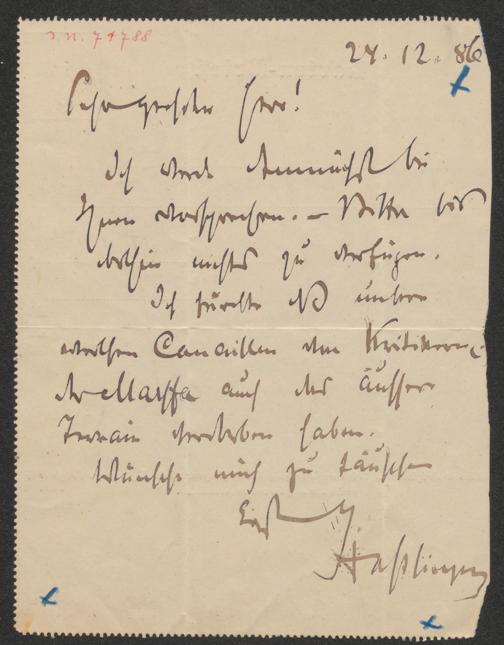 J.N. 71788
24.12.86
Sehr geehrter Herr!
Ich werde demnächst bei
Ihnen vorsprechen. – Bitte bis
dorthin nichts zu verfügen.
Ich fürchte daß unsere
Canaillen von Kritikern
der auch das äussere
Terrain verdorben haben.
Wünsche mich zu täuschen
Haßlinger